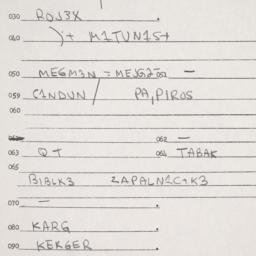 030 ROJ3X
040 )+ M1TUN1S+
050 MEGM3N = MEJG2= 052 —
059 C1NDUN / PA,PIROS
060
062 —
063 Q+ 064 TABAK
065
BIBLK3 ZAPALN1C+K3
070 —
080 KARG
090 KEKGER